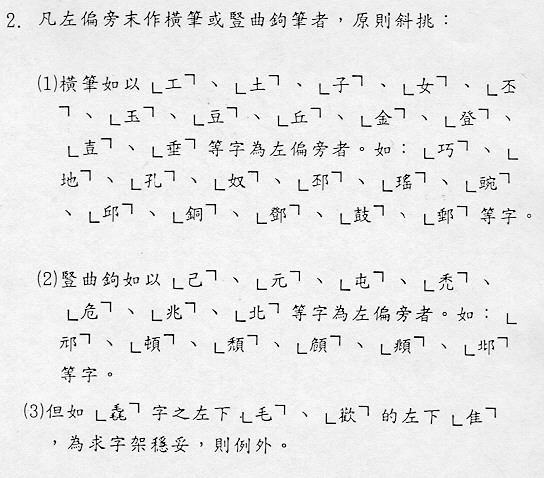 2. 凡左偏旁末作橫筆或豎曲鉤筆者，原則斜挑：
(1)橫筆如以└工┐、└土┐、└子┐、└女┐、└丕
┐、└玉┐、└豆┐、└丘┐、└金┐、└登┐、
└壴┐、└垂┐等字為左偏旁者。如：└巧┐、└
地┐、└孔┐、└奴┐、└邳┐、└瑤┐、└豌┐
、└邱┐、└銅┐、└鄧┐、└鼓┐、└郵┐等字。
(2)豎曲鉤如以└己┐、└元┐、└屯┐、└禿┐、
└危┐、└兆┐、└北┐等字為左偏旁者。如：└
邧┐、└頓┐、└頹┐、└頠┐、└頫┐、└邶┐
等字。
(3)但如└毳┐字之左下└毛┐、└歡┐的左下└隹┐
，為求字架穩妥，則例外。